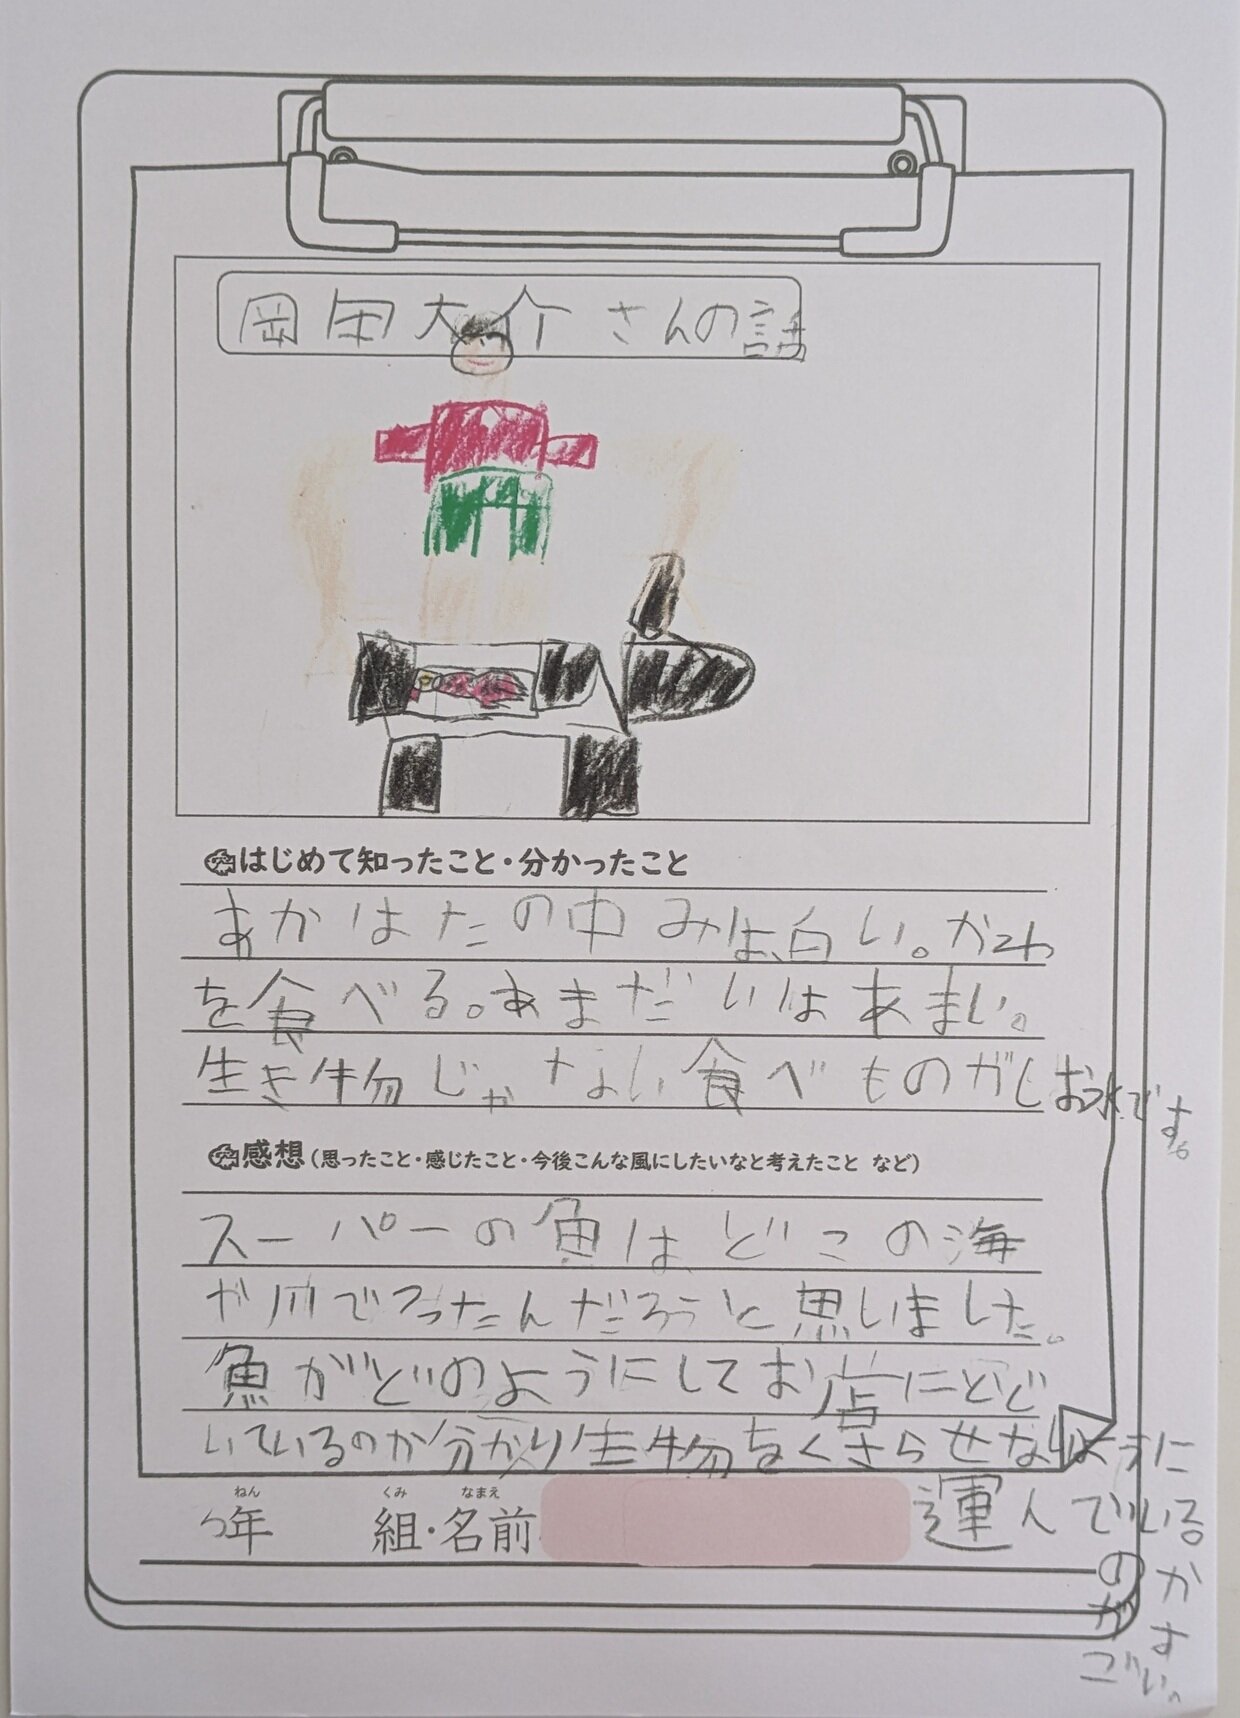 岡田大介さんの話
はじめて知ったこと・分かったこと
あかはたの中みは、白い。かわ
を食べる。あまだいはあまい。
生き物じゃない食べものがしお水です。
感想(思ったこと・感じたこと・今後こんな風にしたいなと考えたこと など)
スーパーの魚は、どこの海
や川でつったんだろうと思いました。
魚がどのようにしてお店にとど
いているのか分かり生き物をくさらせないように
運んでいる
のが
すごい。
ねん くみ なまえ
年 組・名前